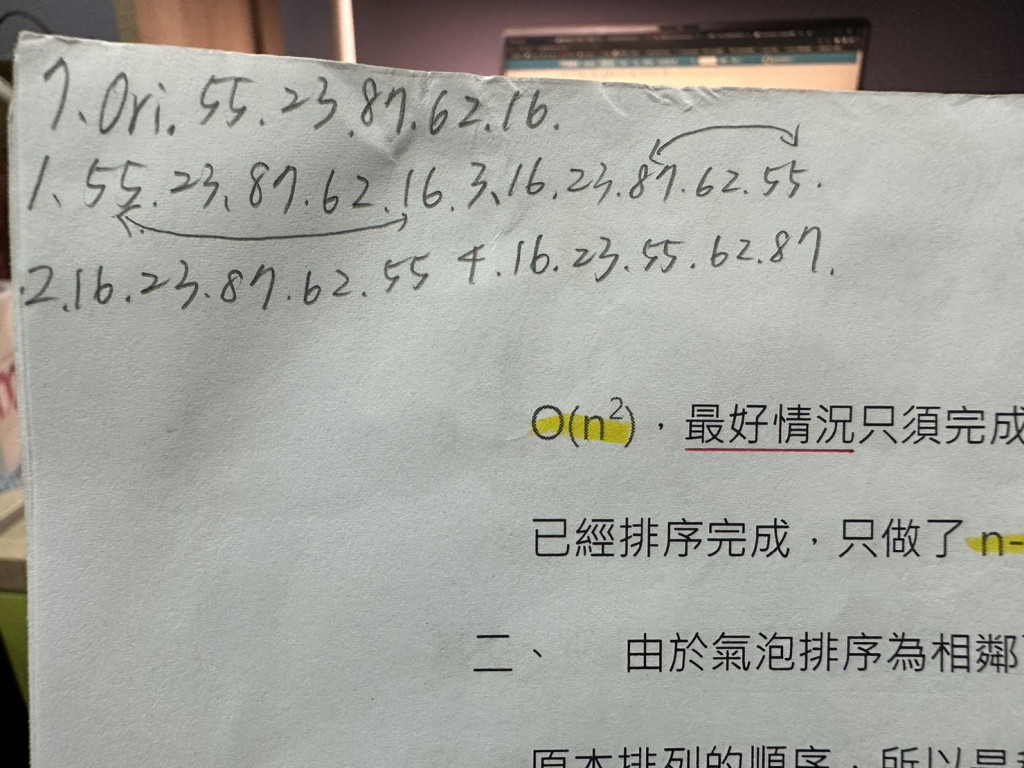 7、Ori. 55.23.87.62.16.
1、55.23、87.62.16.3、16.23.87.62.55.
2.16.23.87.62.55 4.16.23.55.62.87.
O(n²)，最好情況只須完成
已經排序完成，只做了 n-
二、 由於氣泡排序為相鄰
原本排列的順序，所以是